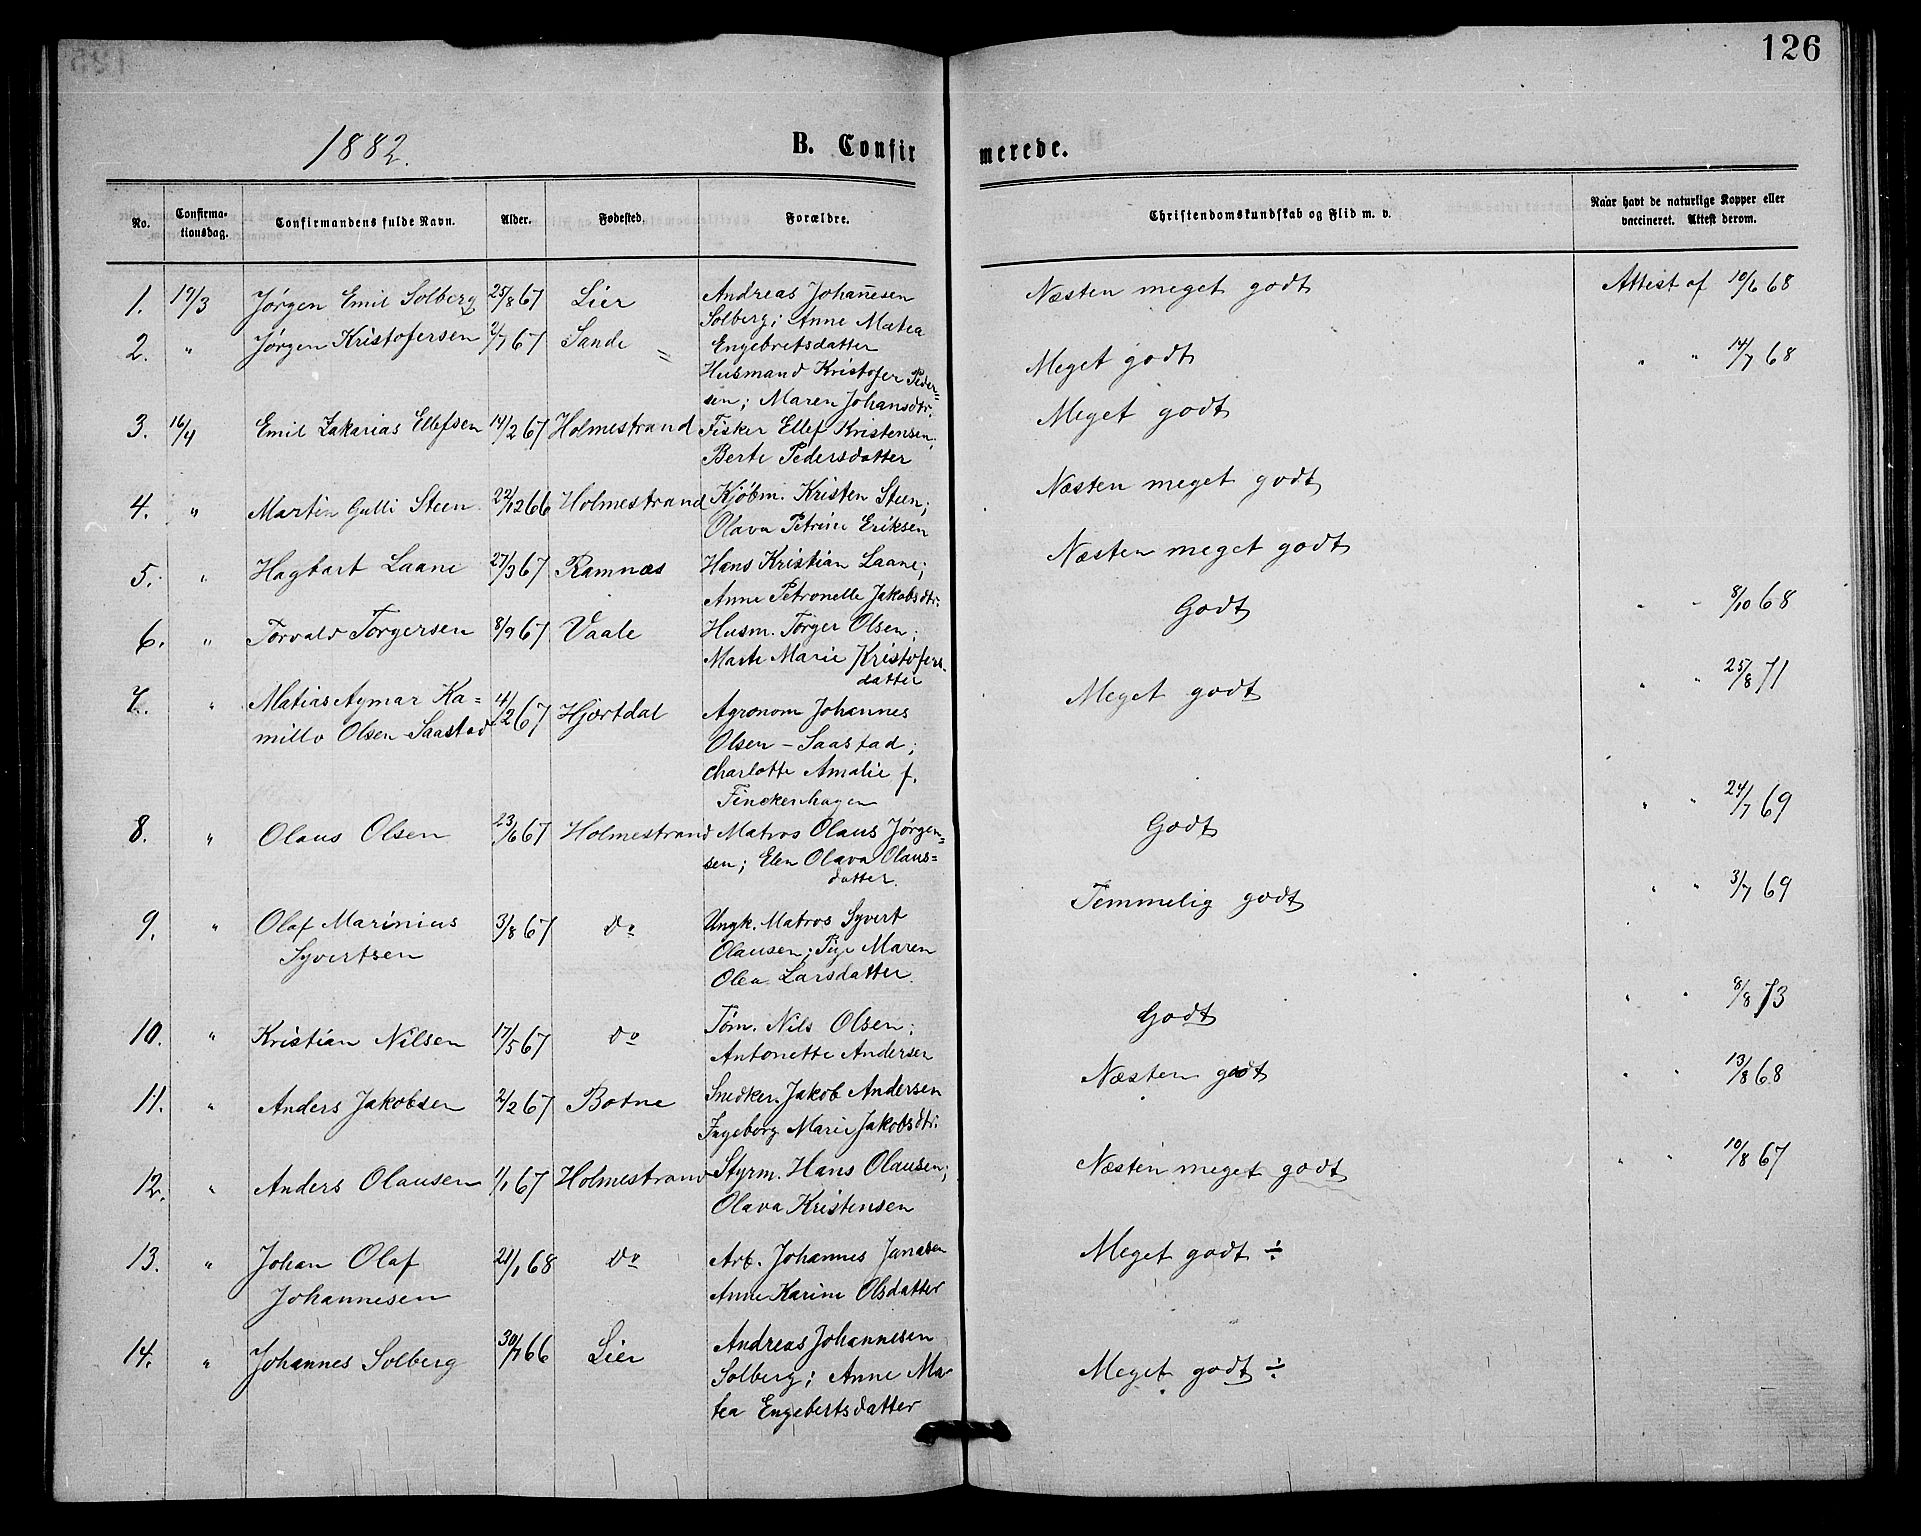 126
1882.
B. Confirmerede.
No. Confirmationsdag. Confirmandens fulde Navn. Alder. Fødested. Forældre. Christendomskundskab og Flid m. v. Naar havt de naturlige Kopper eller vaccineret. Attest derom.
1. 19/3 Jørgen Emil Solberg 25/8 67 Lier Andreas Johannesen Næsten meget godt Attest af 10/6 68
Solberg; Anne Matea
Engebretsdatter
2. " Jørgen Kristofersen 2/7 67 Sande Husmand Kristofer Peder= Meget godt " " 14/7 68
sen; Maren Johansdtr.
3. 16/4 Emil Zakarias Ellefsen 14/2 67 Holmestrand Fisker Ellef Kristensen; Meget godt
Berte Pedersdatter
4. " Martin Gulli Steen 22/12 66 Holmestrand Kjøbm. Kristen Steen; Næsten meget godt
Olava Petrine Eriksen
5. " Hagbart Laane 27/3 67 Ramnæs Hans Kristian Laane; Næsten meget godt
Anne Petronelle Jakobsdtr.
6. " Torvald Torgersen 8/9 67 Vaale Husm. Torger Olsen; Godt " " 8/10 68
Marte Marie Kristofers-
datter
7. " Matias Aymar Ka= 4/2 67 Hjertdal Agronom Johannes Meget godt " " 25/8 71
millo Olsen-Saastad Olsen-Saastad;
Charlotte Amalie f.
Finckenhagen
8. " Olaus Olsen 23/6 67 Holmestrand Matros Olaus Jørgen= Godt " " 24/7 69
sen; Elen Olava Olaus=
datter.
9. " Olaf Marinius 3/8 67 do Ungk. Matros Syvert Temmelig godt " " 3/7 69
Syvertsen Olausen; Pige Maren
Olea Larsdatter
10. " Kristian Nilsen 17/5 67 do Tøm. Nils Olsen; Godt " " 8/8 73
Antonette Andersen
11. " Anders Jakobsen 2/2 67 Botne Snedker Jakob Andersen Næsten godt " " 13/8 68
Ingeborg Marie Jakobsdtr.
12. " Anders Olausen 1/1 67 Holmestrand Styrm. Hans Olausen; Næsten meget godt " " 10/8 67
Olava Kristensen
13. " Johan Olaf 21/1 68 do Arb. Johannes Jansen Meget godt ÷
Johannesen Anne Karine Olsdatter
14. " Johannes Solberg 30/7 66 Lier Andreas Johannesen Meget godt ÷
Solberg; Anne Ma-
tea Engebertsdatter